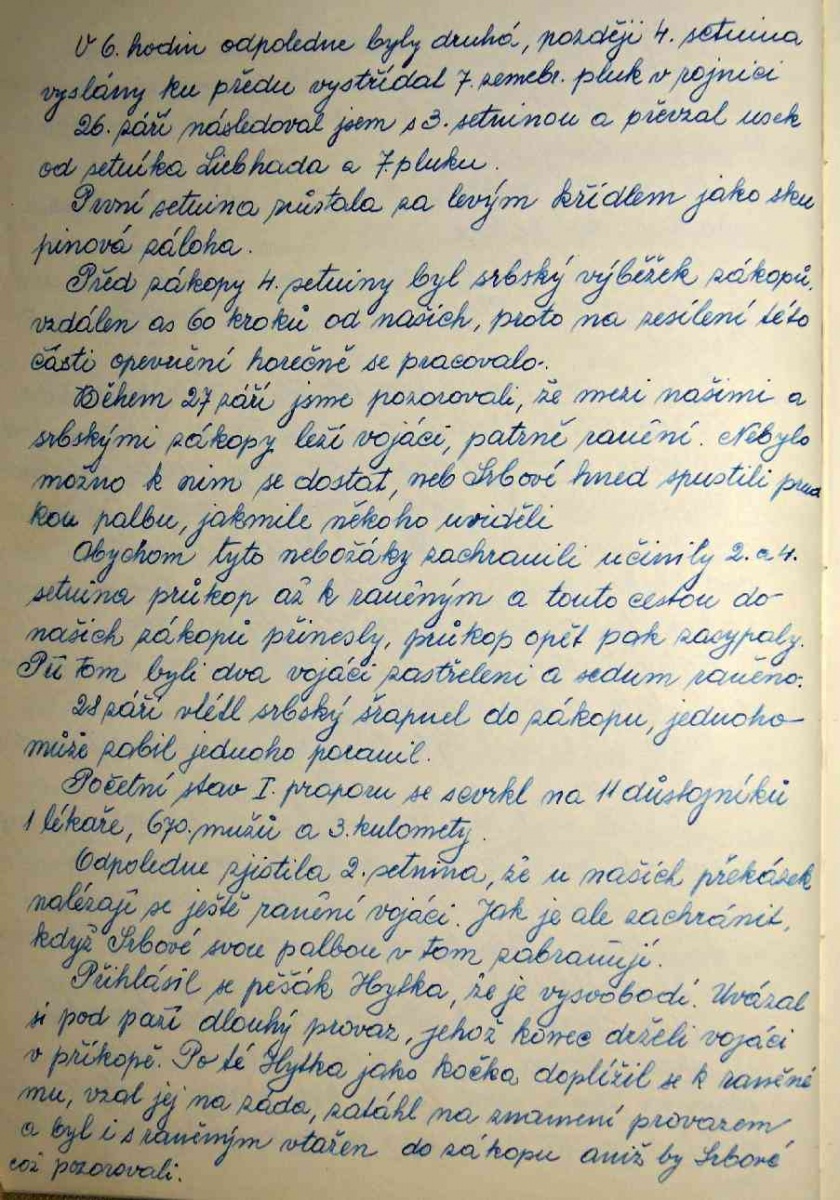 V 6. hodin odpoledne byly druhá, později 4. setnina
vyslány ku předu vystřídal 7. zeměbr. pluk v rojnici
26. září následoval jsem s 3. setninou a převzal usek
od setníka Liebhada a 7. pluku.
První setnina zůstala za levým křídlem jako sku
pinová záloha.
Před zákopy 4. setniny byl srbský výběžek zákopů,
vzdálen as 60 kroků od našich, proto na zesílení této
části opevnění horečně se pracovalo.
Během 27 září jsme pozorovali, že mezi našimi a
srbskými zákopy leží vojáci, patrně ranění. Nebylo
možno k nim se dostat, neb Srbové hned spustili prud
kou palbu, jakmile někoho uviděli
Abychom tyto nebožáky zachranili učinily 2. a 4.
setnina průkop až k raněným a touto cestou do
našich zákopů přinesly, průkop opět pak zasypaly.
Při tom byli dva vojáci zastřeleni a sedum raněno.
28 září vlétl srbský šrapnel do zákopu, jednoho
může zabil jednoho poranil.
Početní stav I. praporu se scvrkl na 11 důstojníků
1 lékaře, 670. mužů a 3. kulomety.
Odpoledne zjistila 2. setnina, že u našich překážek
nalézají se ještě ranění vojáci. Jak je ale zachránit,
když Srbové svou palbou v tom zabraňují.
Přihlásil se pěšák Hytka, že je vysvobodí. Uvázal
si pod paží dlouhý provaz, jehož konec drželi vojáci
v příkopě. Po té Hytka jako kočka doplížil se k raněné
mu, vzal jej na záda, zatáhl na znamení provazem
a byl i s raněným vtažen do zákopu aniž by Srbové
což pozorovali.